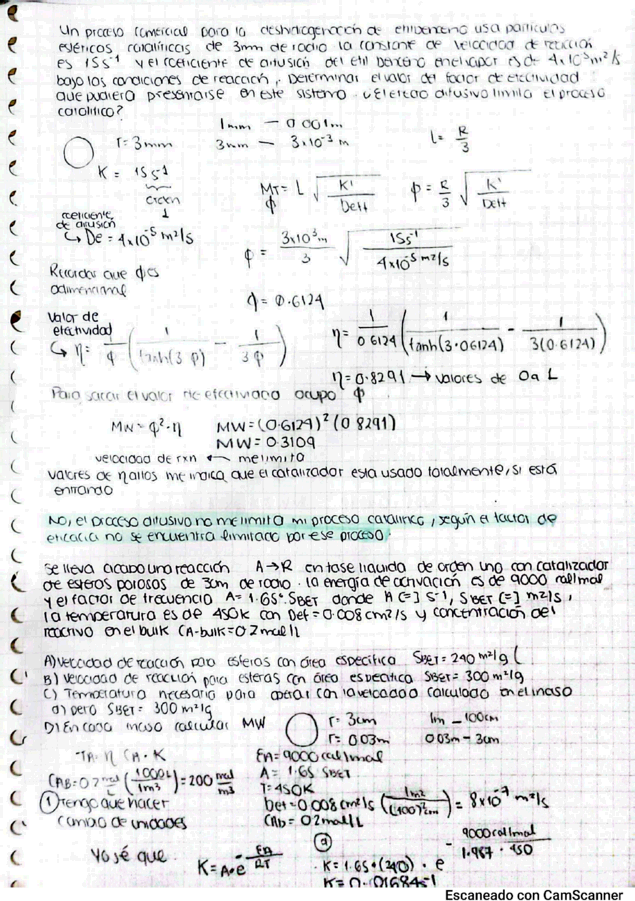 Un proceso comercial para la deshidrogenación de etilbenceno usa partículas
esféricas catalíticas de 3mm de radio la constante de velocidad de reacción
es 15 s⁻¹ y el coeficiente de difusión del etil benceno en el vapor es de 4x10⁻⁵ m²/s
bajo las condiciones de reacción, Determinar el valor del factor de efectividad
que pudiera presentarse en este sistema. ¿El efecto difusivo limita el proceso
catalítico?
1mm — 0.001m
r = 3mm 3mm — 3x10⁻³ m L = R/3
K = 15 s⁻¹
orden 1
MT = L √(K'/Deff) φ = R/3 √(K'/Deff)
φ
coeficiente
de difusión
↳ De = 4x10⁻⁵ m²/s
φ = 3x10³m/3 √(15s⁻¹/4x10⁻⁵ m²/s)
Recordar que φ es
adimensional
φ = 0.6124
Valor de
efectividad
↳ η = 1/φ (1/tanh(3φ) − 1/3φ)
η = 1/0.6124 (1/tanh(3·0.6124) − 1/3(0.6124))
η = 0.8291 → valores de 0 a 1
Para sacar el valor de efectividad ocupo φ
MW = φ²·η MW = (0.6124)² (0.8291)
MW = 0.3109
velocidad de rxn ← me limito
valores de η altos me indica que el catalizador esta usado totalmente, si está
entrando
No, el proceso difusivo no me limita mi proceso catalítico, según el factor de
eficacia no se encuentra limitado por ese proceso.
Se lleva acabo una reacción A→R en fase liquida de orden uno con catalizador
de esferos porosos de 3cm de radio. La energía de activación es de 9000 cal/mol
y el factor de frecuencia A = 1.65*SBET donde A [=] s⁻¹, SBET [=] m²/s,
la temperatura es de 450K con Def = 0.008 cm²/s y concentración del
reactivo en el bulk CA-bulk = 0.2 mol/L
A) Velocidad de reacción para esferas con área especifica SBET = 240 m²/g (
B) Velocidad de reacción para esferas con área especifica SBET = 300 m²/g
C) Temperatura necesaria para operar con la velocidad calculado en el inciso
a) pero SBET = 300 m²/g
D) En cada inciso calcular MW
r = 3cm 1m — 100cm
r = 0.03m 0.03m — 3cm
-rA = η CA·K EA = 9000 cal/mol
A = 1.65 SBET
CAB = 0.2 mol/L (1000L/1m³) = 200 mol/m³
T = 450K
① Tengo que hacer
cambio de unidades
Def = 0.008 cm²/s (1m²/(100)²cm²) = 8x10⁻⁷ m²/s
CAb = 0.2 mol/L
Yo sé que K = A·e^(−EA/RT)
ⓐ
K = 1.65·(240)·e^(−9000 cal/mol / 1.987·450)
K = 0.01684s⁻¹
Escaneado con CamScanner